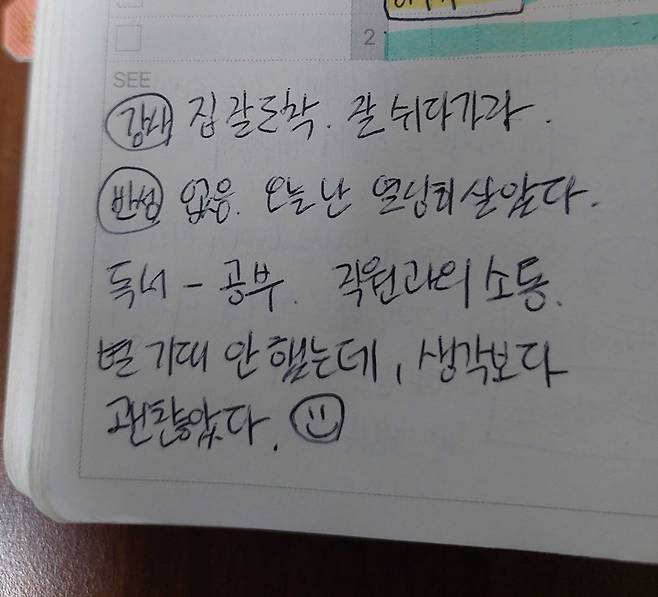 2
SEE
감사 집 잘 도착. 잘 쉬다가라.
반성 없음. 오늘 난 열심히 살았다.
독서 - 공부. 직원과의 소통.
별 기대 안 했는데, 생각보다
괜찮았다.